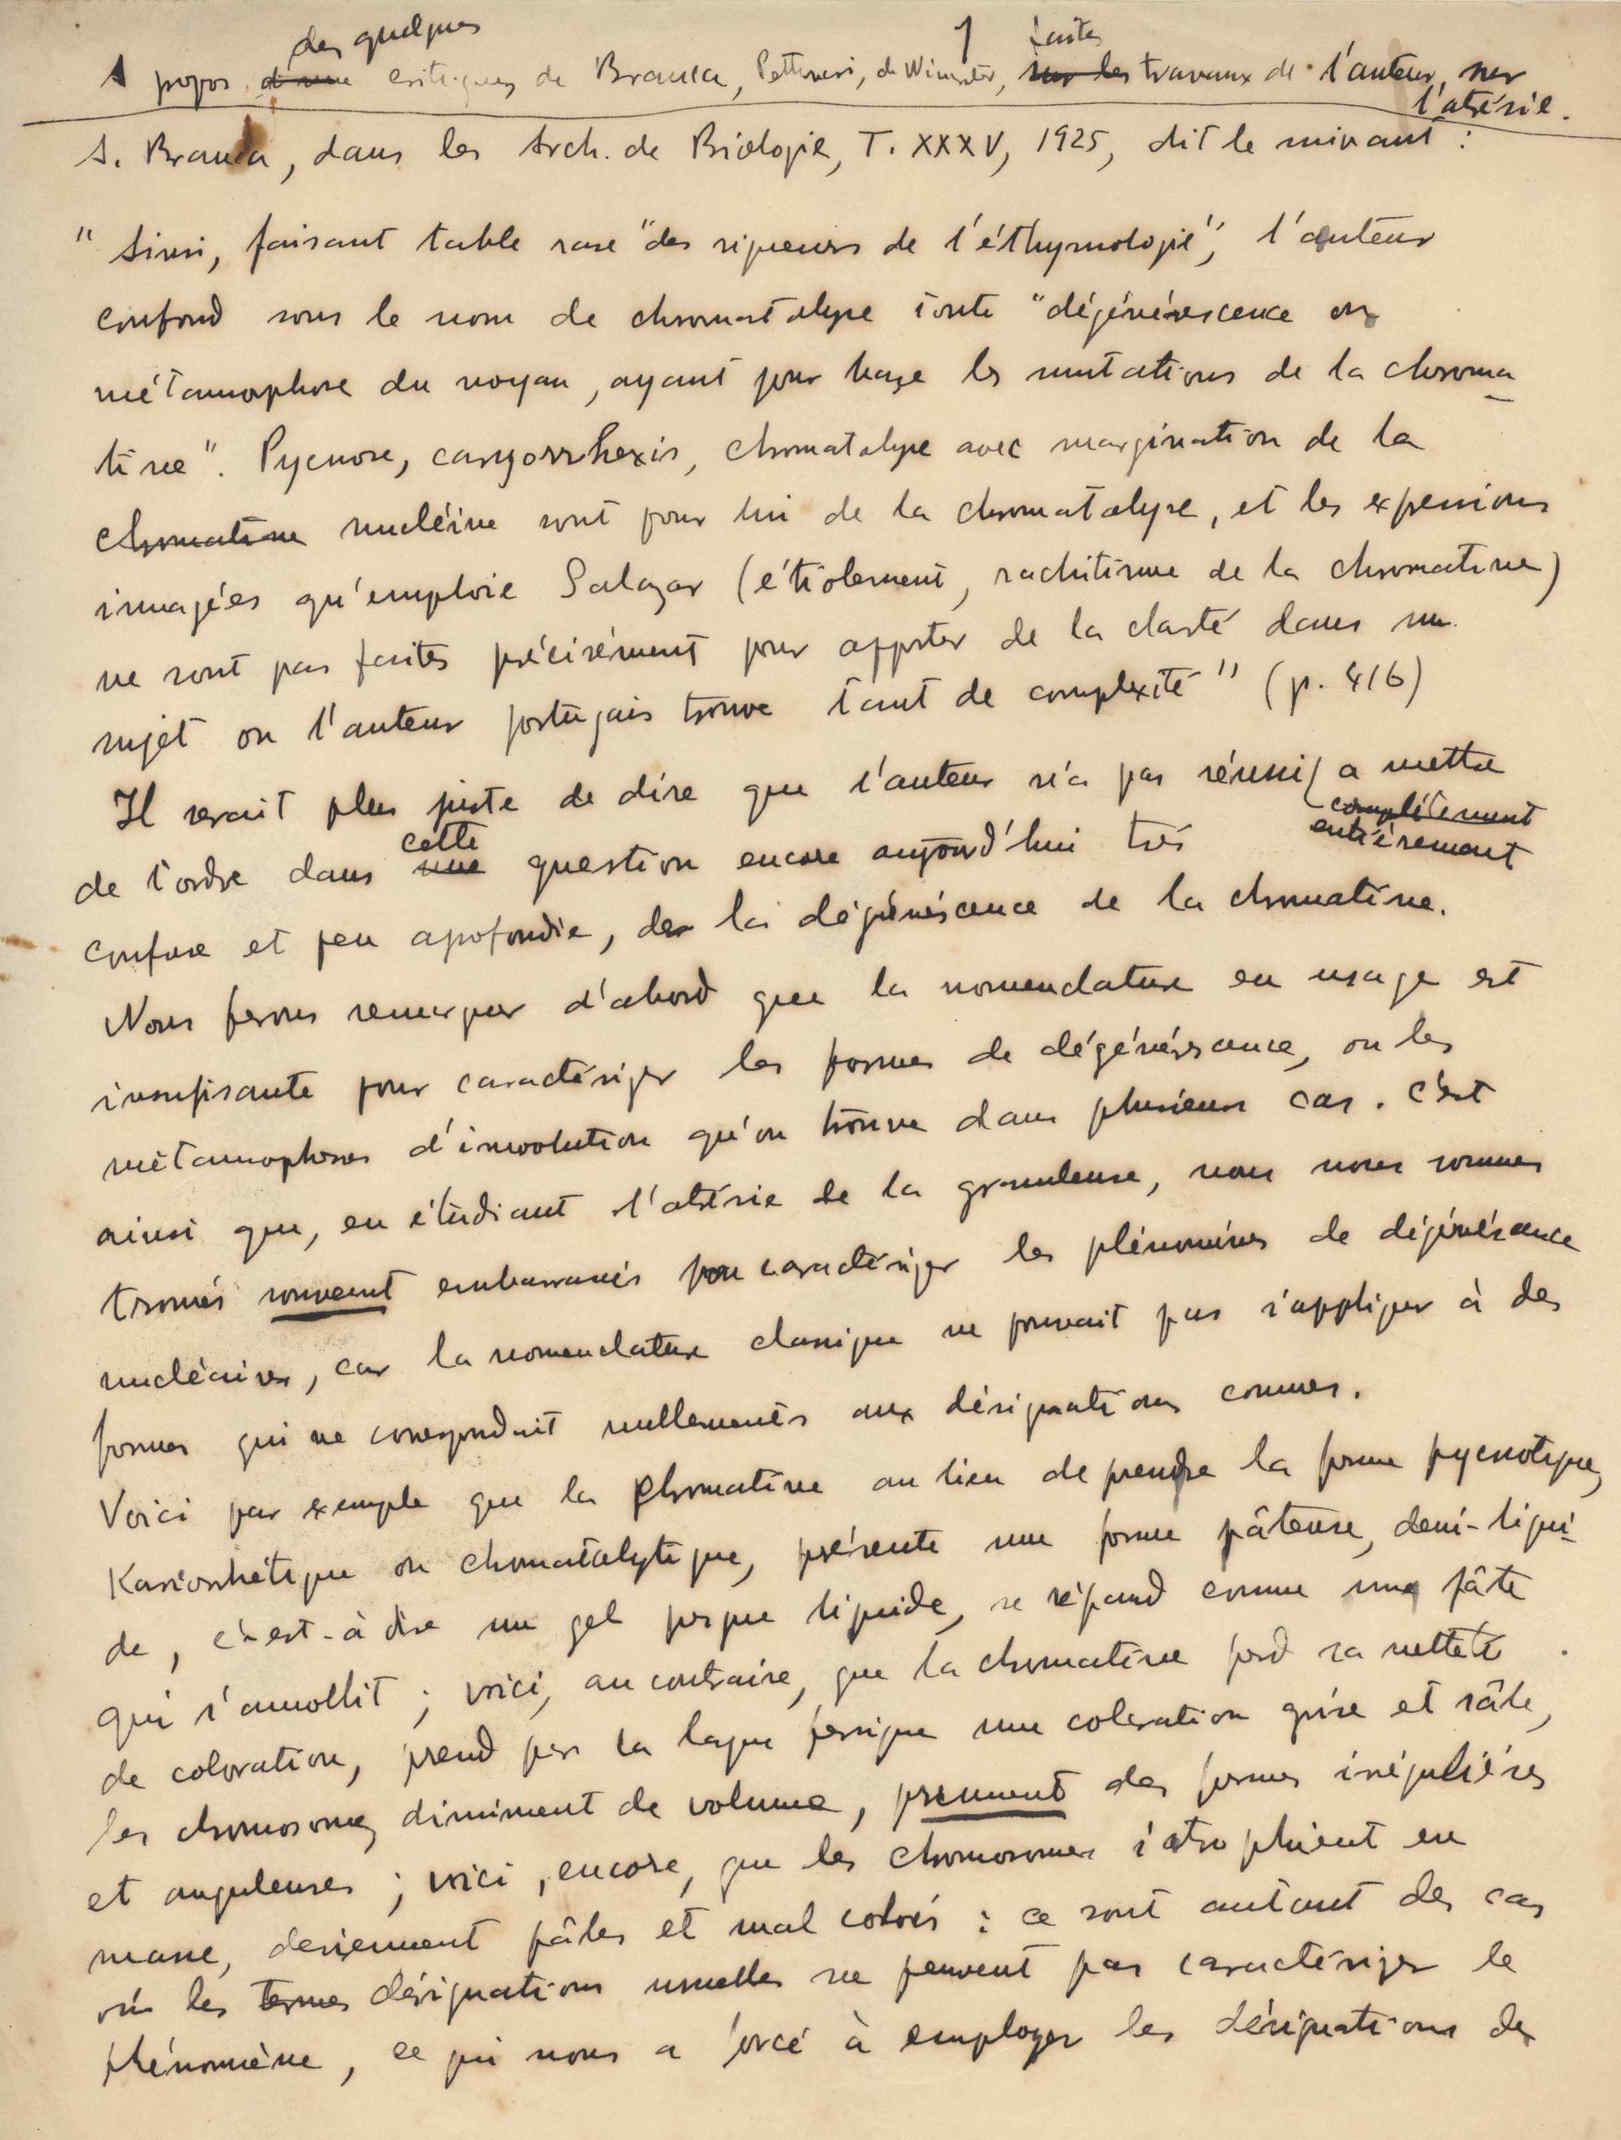 1
A propos d'une des quelques critiques de Branca, Pettinari, de Winiwarter, sur les faites travaux de l'auteur, sur
l'atrésie.
A. Branca, dans les Arch. de Biologie, T. XXXV, 1925, dit le suivant :
" Ainsi, faisant table rase "des rigueurs de l'éthymologie", l'auteur
confond sous le nom de chromatolyse toute "dégénérescence ou
métamorphose du noyau, ayant pour baze les mutations de la chroma_
tine". Pycnose, caryorrhexis, chromatolyse avec margination de la
chromatine nucléine sont pour lui de la chromatolyse, et les expressions
imagées qu'emploie Salazar (étiolement, rachitisme de la chromatine)
ne sont pas faites précisément pour apporter de la clarté dans un
sujet ou l'auteur portugais trouve tant de complexité" (p. 416)
Il serait plus juste de dire que l'auteur n'a pas réussi a mettre
complétement
entiérement
de l'ordre dans une cette question encore aujourd'hui trés
confuse et peu apofondie, de la dégénéscence de la chromatine.
Nous ferons remarquer d'abord que la nomenclature en usage est
insufisante pour caractériser les formes de dégénéresance, ou les
métamophoses d'involution qu'on trouve dans plusieurs cas. C'est
ainsi que, en étudiant l'atrésie de la granuleuse, nous nous sommes
trouvés souvent embarrassés pou caractériser les phénoménes de dégénéresance
nucléaires, car la nomenclature classique ne pouvait pas s'appliquer à des
formes qui ne correspondait nullements aux désignations connues.
Voici par exemple que la chromatine au lieu de prendre la forme pycnotique,
Kariorrhétique ou chomatolytique, présente une forme pâteuse, demi-liqui-
de, c'est-à dire un gel presque liquide, se répand comme une pâte
qui s'amollit ; voici, au contraire, que la chromatine perd sa netteté
de coloration, prend par la laque ferrique une coloration grise et sâle,
les chromosomes diminuent de volume, prennent des formes irréguliéres
et anguleuses ; voici, encore, que les chromosomes s'atrophient en
masse, deviennent pâles et mal colorés : ce sont autant des cas
où les termes désignations usuelles ne peuvent pas caractériser le
phénomène, ce qui nous a forcé à employer les désignations de